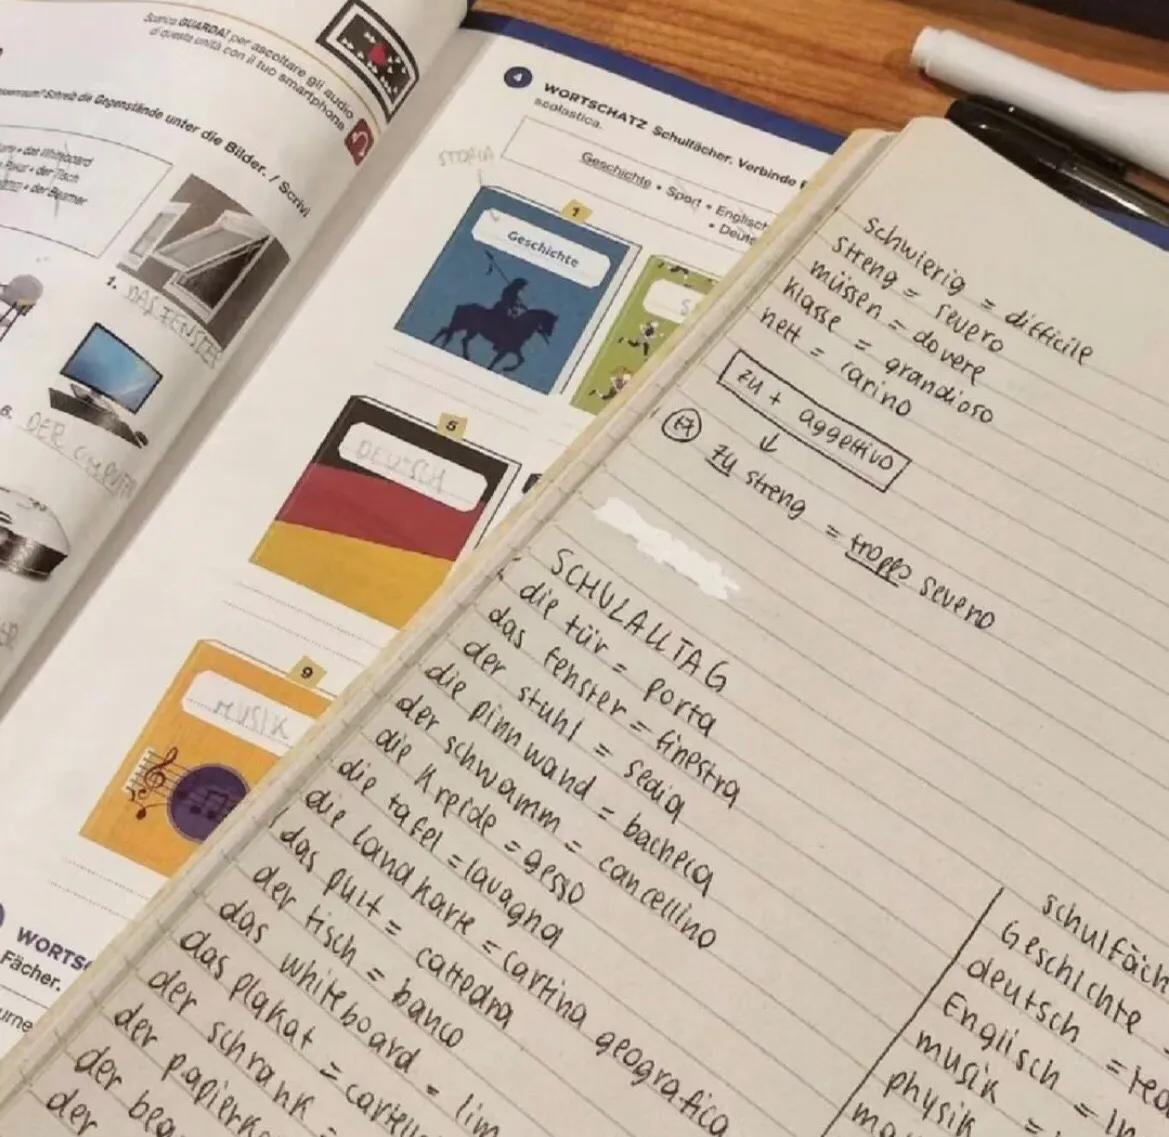 Scarica GUARDA! per ascoltare gli audio
di questa unità con il tuo smartphone
Schreib die Gegenstände unter die Bilder. / Scrivi
das Whiteboard
der Tisch
der Beamer
1. DAS FENSTER
6. DER COMPUTER
4 WORTSCHATZ Schulfächer. Verbinde
scolastica.
Geschichte • Sport • Englisch
• Deuts
STORIA
1
Geschichte
S
5
DEUTSCH
9
MUSIK
WORTS
Fächer.
schwierig = difficile
streng = severo
müssen = dovere
klasse = grandioso
nett = carino
zu + aggettivo
↓
zu streng = troppo severo
SCHULALLTAG
die tür = porta
das fenster = finestra
der stuhl = sedia
die pinnwand = bacheca
der schwamm = cancellino
die kreide = gesso
die tafel = lavagna
die landkarte = cartina geografica
das pult = cattedra
der tisch = banco
das whiteboard = lim
das plakat = cartell
der schrank =
der papierk
der bea
der
schulfäch
Geschichte =
deutsch = ted
Englisch = in
musik =
physik
ma